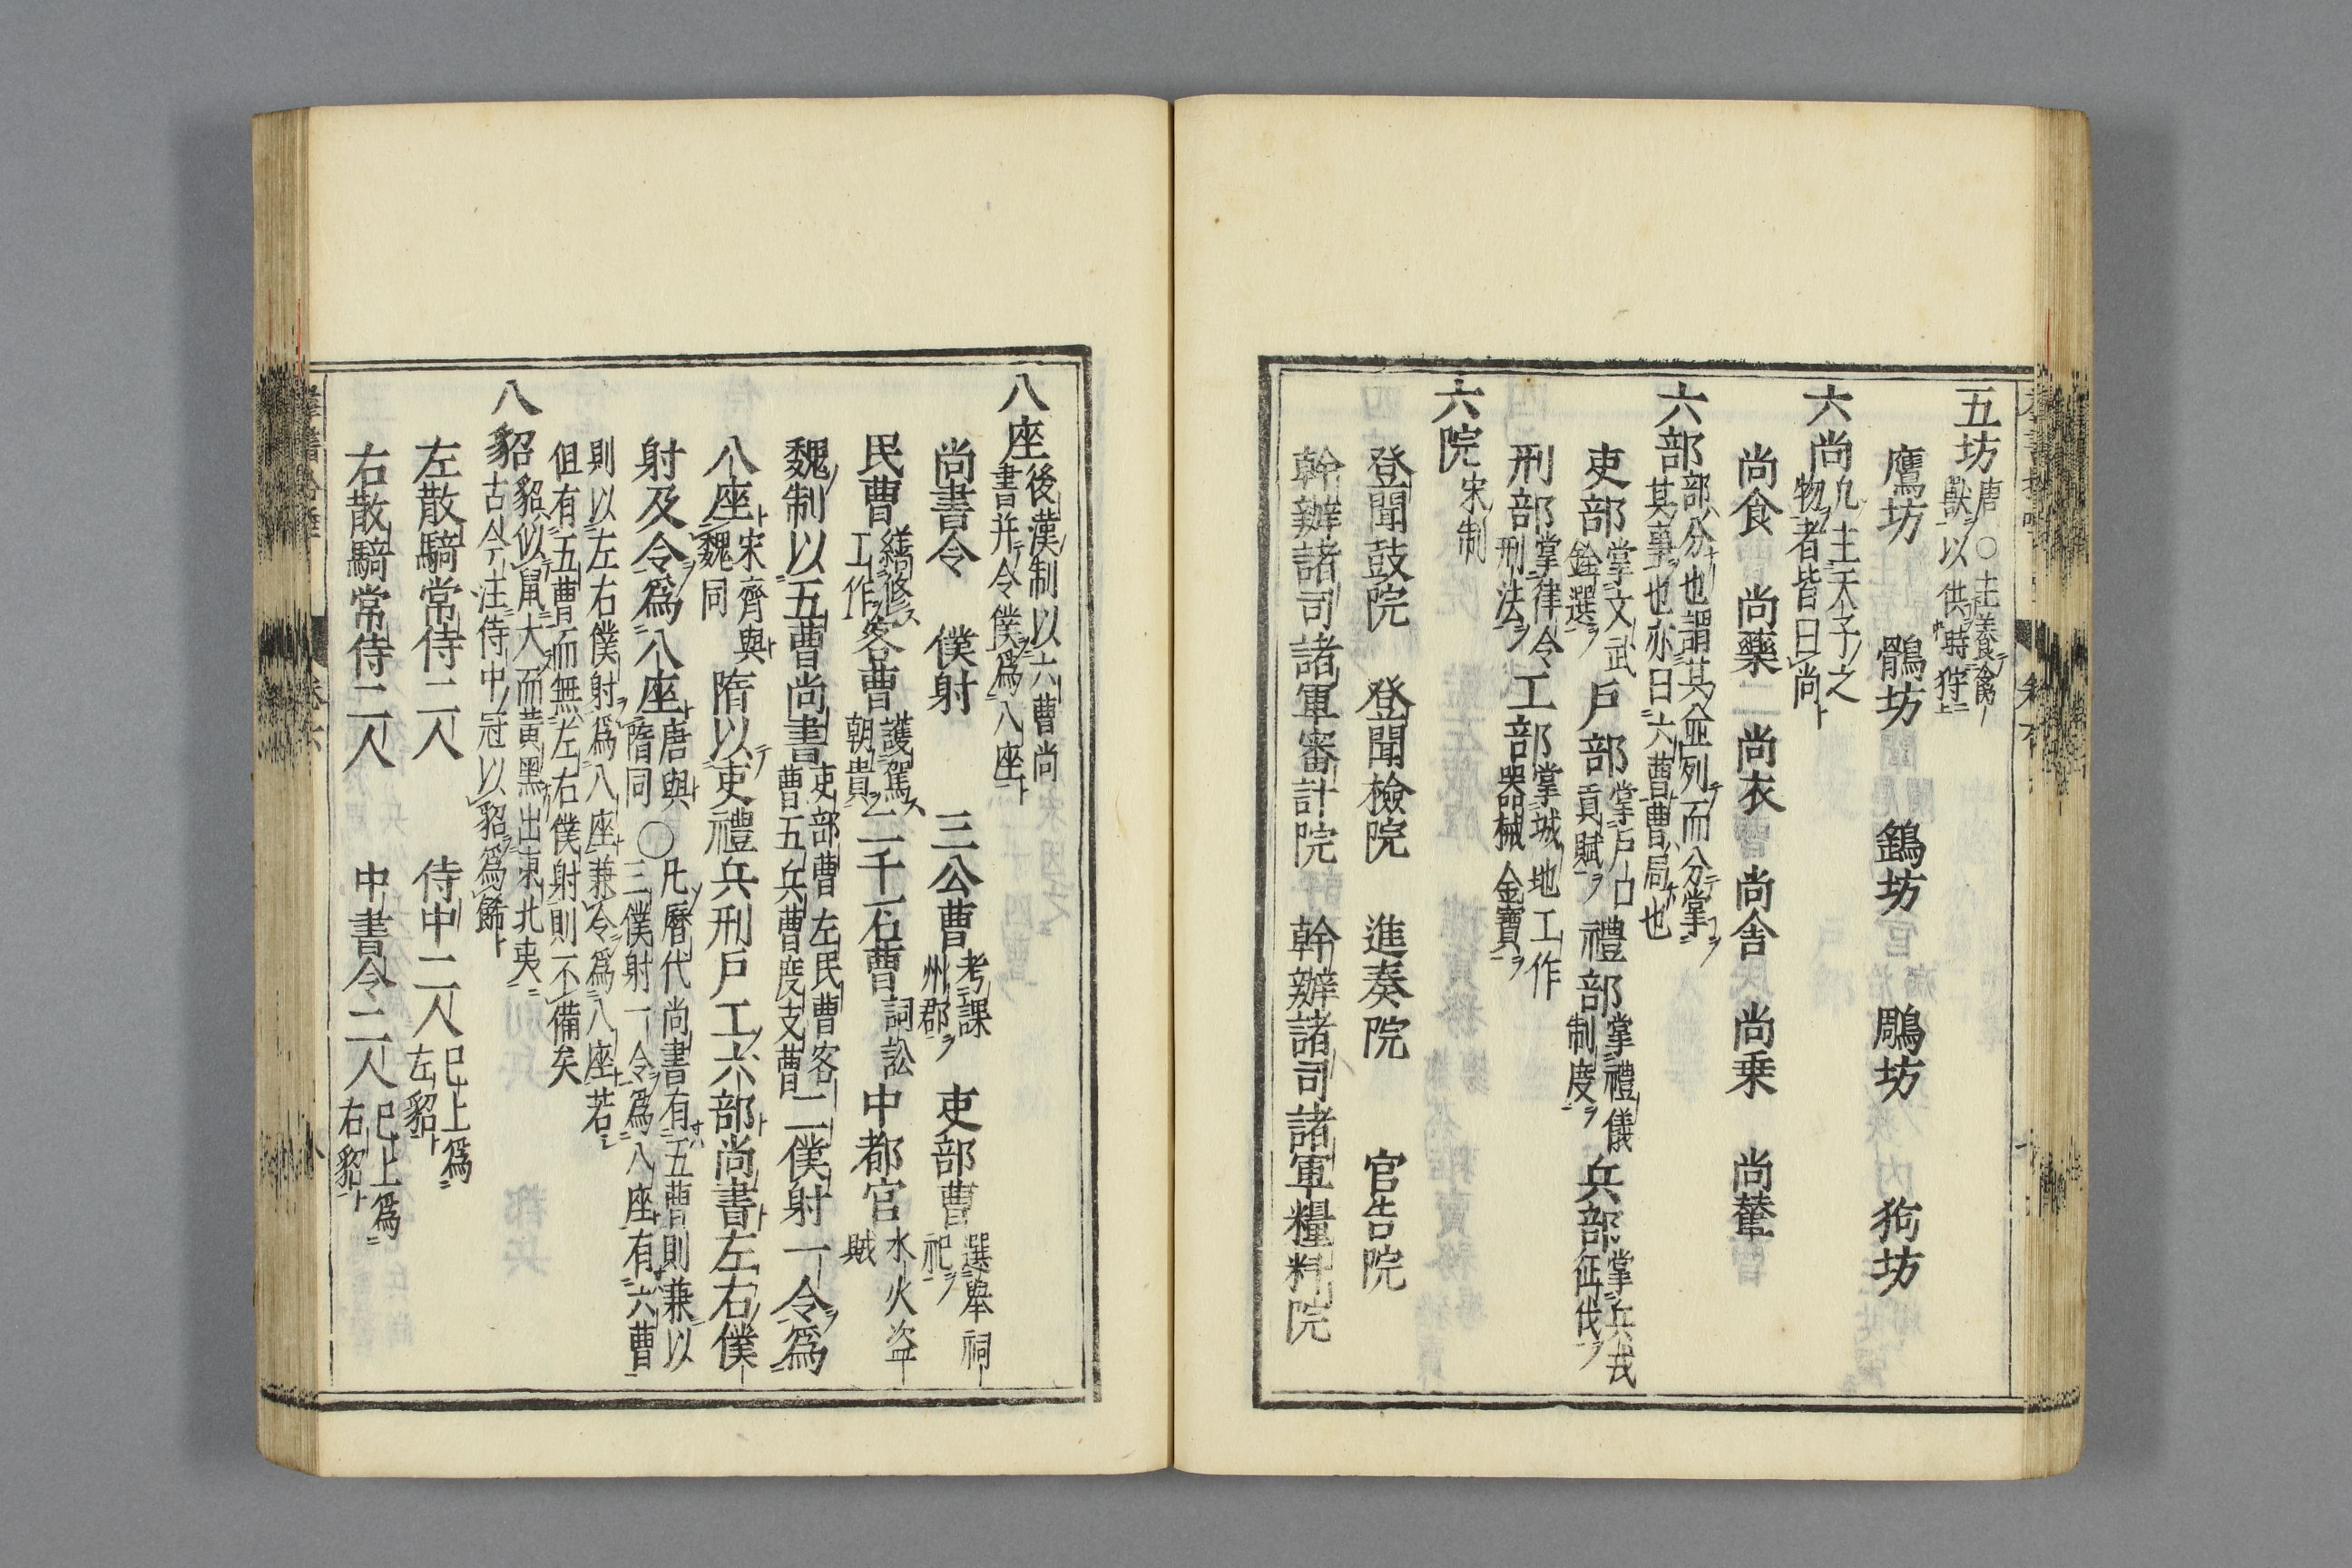 五坊唐○主養禽
獸以供時狩
鷹坊　鶻坊　鷂坊　鵰坊　狗坊
六尚凡主天子之
物者皆曰尚
尚食　尚藥　尚衣　尚舍　尚乗　尚輦
六部部分也謂其竝列而分掌
其事也亦曰六曹曹局也
吏部掌文武
銓選　戶部掌戶口
貢賦　禮部掌禮儀
制度　兵部掌兵戎
征伐
刑部掌律令
刑法　工部掌城地工作
器械金寶
六院宋制
登聞鼓院　登聞檢院　進奏院　官告院
幹辦諸司諸軍審計院　幹辦諸司諸軍糧料院
八座後漢制以六曹尚
書并令僕爲八座
尚書令　僕射　三公曹考課
州郡　吏部曹選舉祠
祀
民曹繕修
工作　客曹護駕
朝貴　二千石曹詞訟　中都官水火盗
賊
魏制以五曹尚書吏部曹左民曹客
曹五兵曹度支曹　二僕射一令爲
八座宋齊與
魏同　隋以吏禮兵刑戶工六部尚書左右僕
射及令爲八座唐與
隋同○凡曆代尚書有五曹則兼以
三僕射一令爲八座有六曹
則以左右僕射爲八座兼令爲八座若
但有五曹而無左右僕射則不備矣
八貂貂似鼠大而黃黑出東北夷
古今注侍中冠以貂爲飾
左散騎常侍二人　侍中二人已上爲
左貂
右散騎常侍二人　中書令二人已上爲
右貂